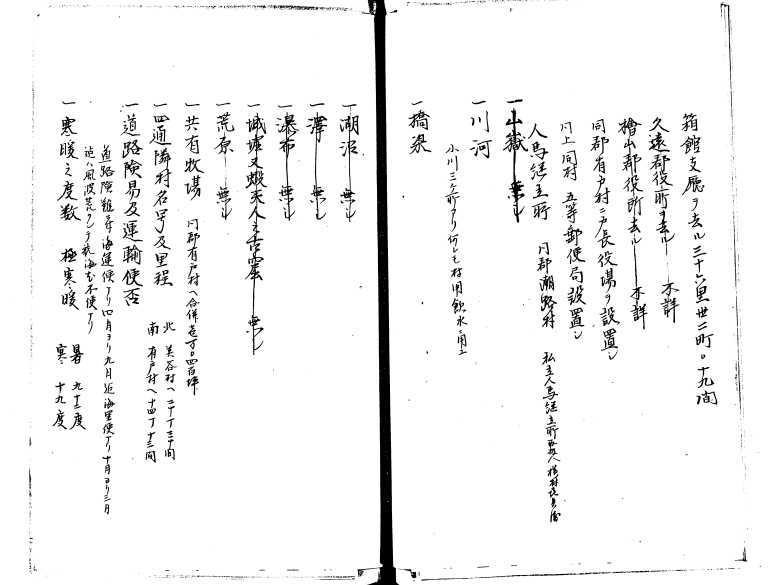 箱館支廳ヲ去ル三十六里廿二町〇十九間
久遠郡役所ヲ去ル——不詳
檜山郡役所去ル——不詳
同郡有戸村ニ戸長役場ヲ設置シ
同上同村 五等郵便局設置シ
人馬継立所 同郡潮路村 私立人馬継立所
一山嶽 無シ
一川河
小川三ヶ所アリ何レモ村用飲水ニ用ユ
一橋梁
一湖沼 無シ
一澤 無シ
一瀑布 無シ
一城墟又蝦夷人ノ舌窟 無シ
一荒原 無シ
一共有牧場 同郡有戸村ヘ合併
一四通隣村名字及里程
北 美谷村ヘ二十丁三十間
南 有戸村ヘ十四丁十三間
一道路険易及運輸便否
道路険難 海運便ナリ四月ヨリ九月迄海里便ナリ十月ヨリ三月
迄ハ風波荒クシテ航海尤不便ナリ
一寒暖之度数 極寒暖
暑 九十三度
寒 十九度